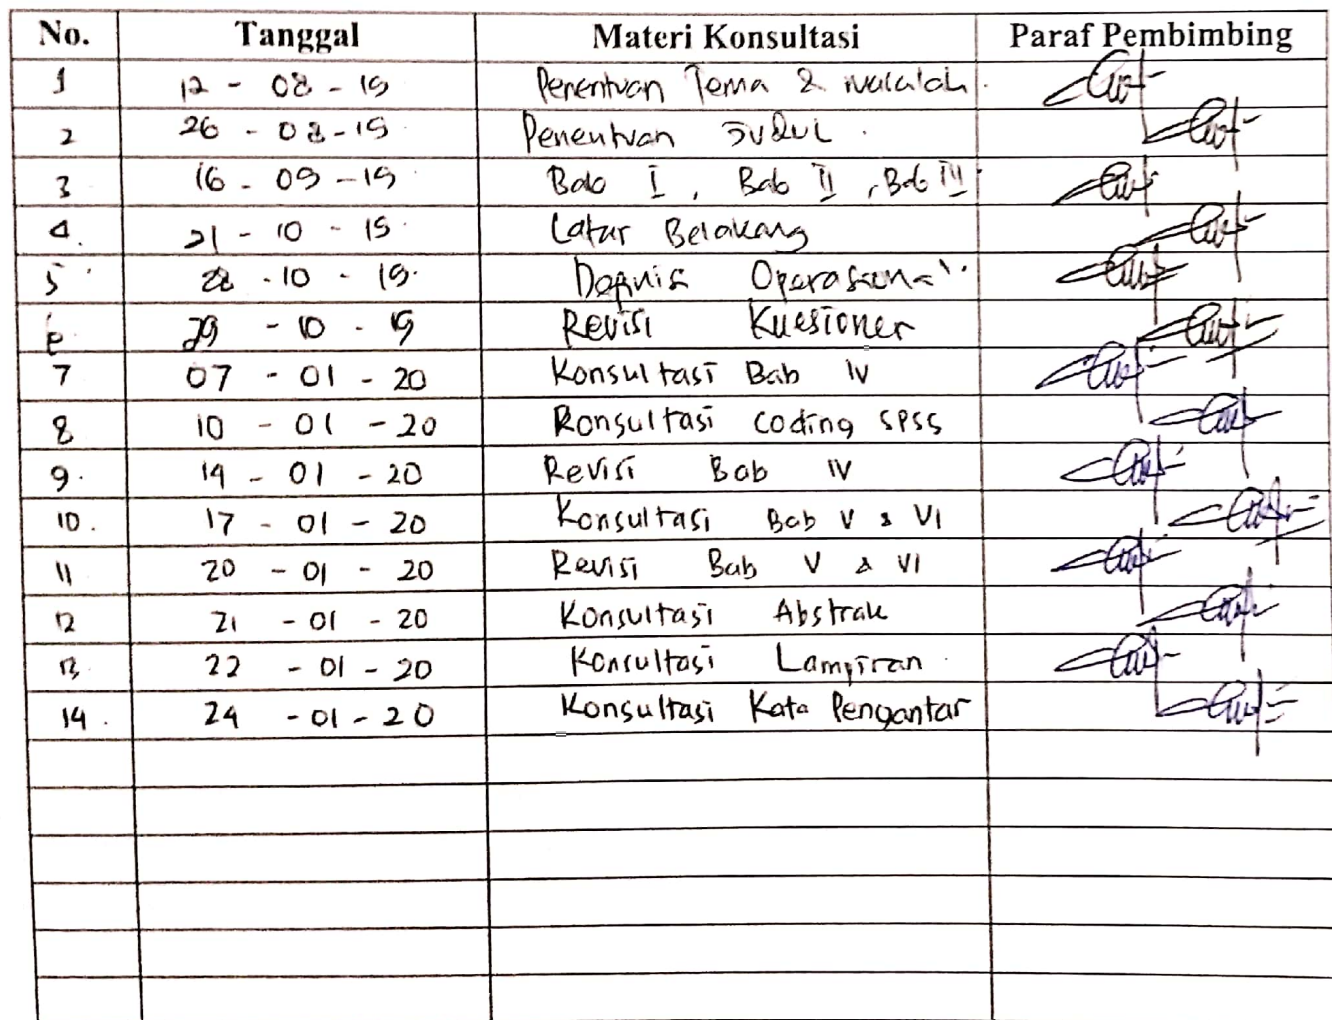 No. Tanggal Materi Konsultasi Paraf Pembimbing
1 12 - 08 - 19 Penentuan Tema & Masalah.
2 26 - 08 - 19 Penentuan Judul.
3 16 - 09 - 19 Bab I, Bab II, Bab III
4. 21 - 10 - 19 Latar Belakang
5 28 - 10 - 19. Definisi Operasional
6 29 - 10 - 19 Revisi Kuesioner
7 07 - 01 - 20 Konsultasi Bab IV
8 10 - 01 - 20 Konsultasi coding SPSS
9. 14 - 01 - 20 Revisi Bab IV
10. 17 - 01 - 20 Konsultasi Bab V & VI
11 20 - 01 - 20 Revisi Bab V & VI
12 21 - 01 - 20 Konsultasi Abstrak
13. 22 - 01 - 20 Konsultasi Lampiran
14. 24 - 01 - 20 Konsultasi Kata Pengantar